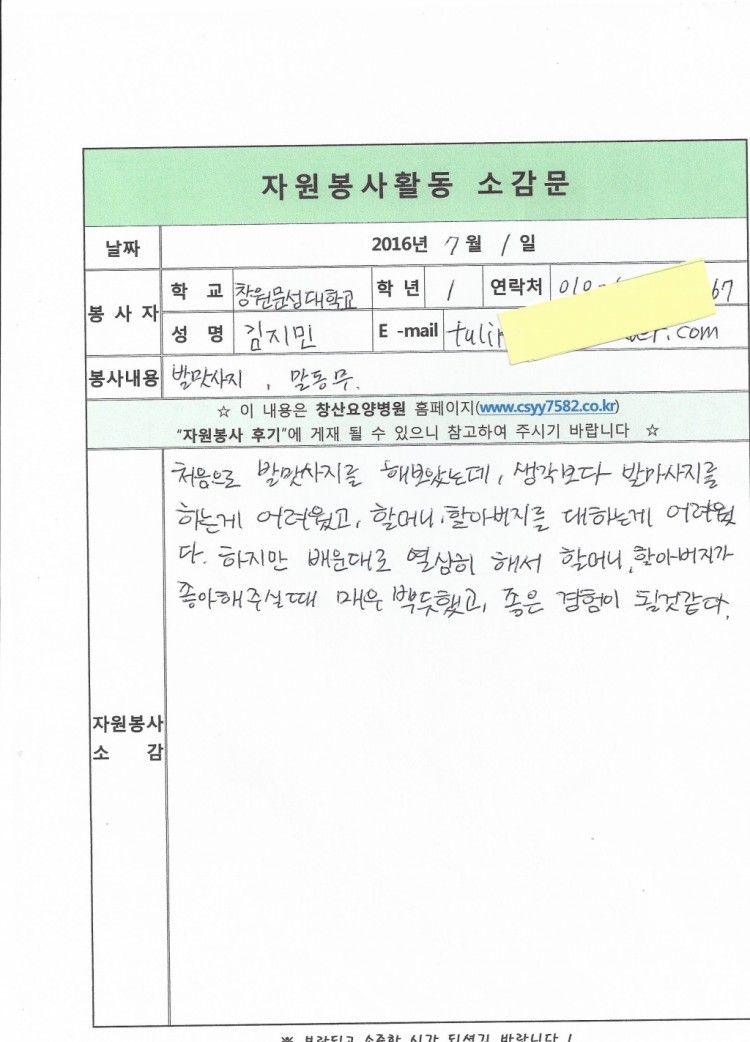 자원봉사활동 소감문
날짜 2016년 7월 1일
봉사자 학교 창원문성대학교 학년 1 연락처 010- 67
성명 김지민 E-mail tulip .com
봉사내용 발맛사지, 말동무.
☆ 이 내용은 창산요양병원 홈페이지(www.csyy7582.co.kr)
"자원봉사 후기"에 게재 될 수 있으니 참고하여 주시기 바랍니다 ☆
자원봉사
소 감
처음으로 발맛사지를 해보았는데, 생각보다 발마사지를
하는게 어려웠고, 할머니, 할아버지를 대하는게 어려웠
다. 하지만 배운대로 열심히 해서 할머니, 할아버지가
좋아해주실때 매운 뿌듯했고, 좋은 경험이 될것같다.